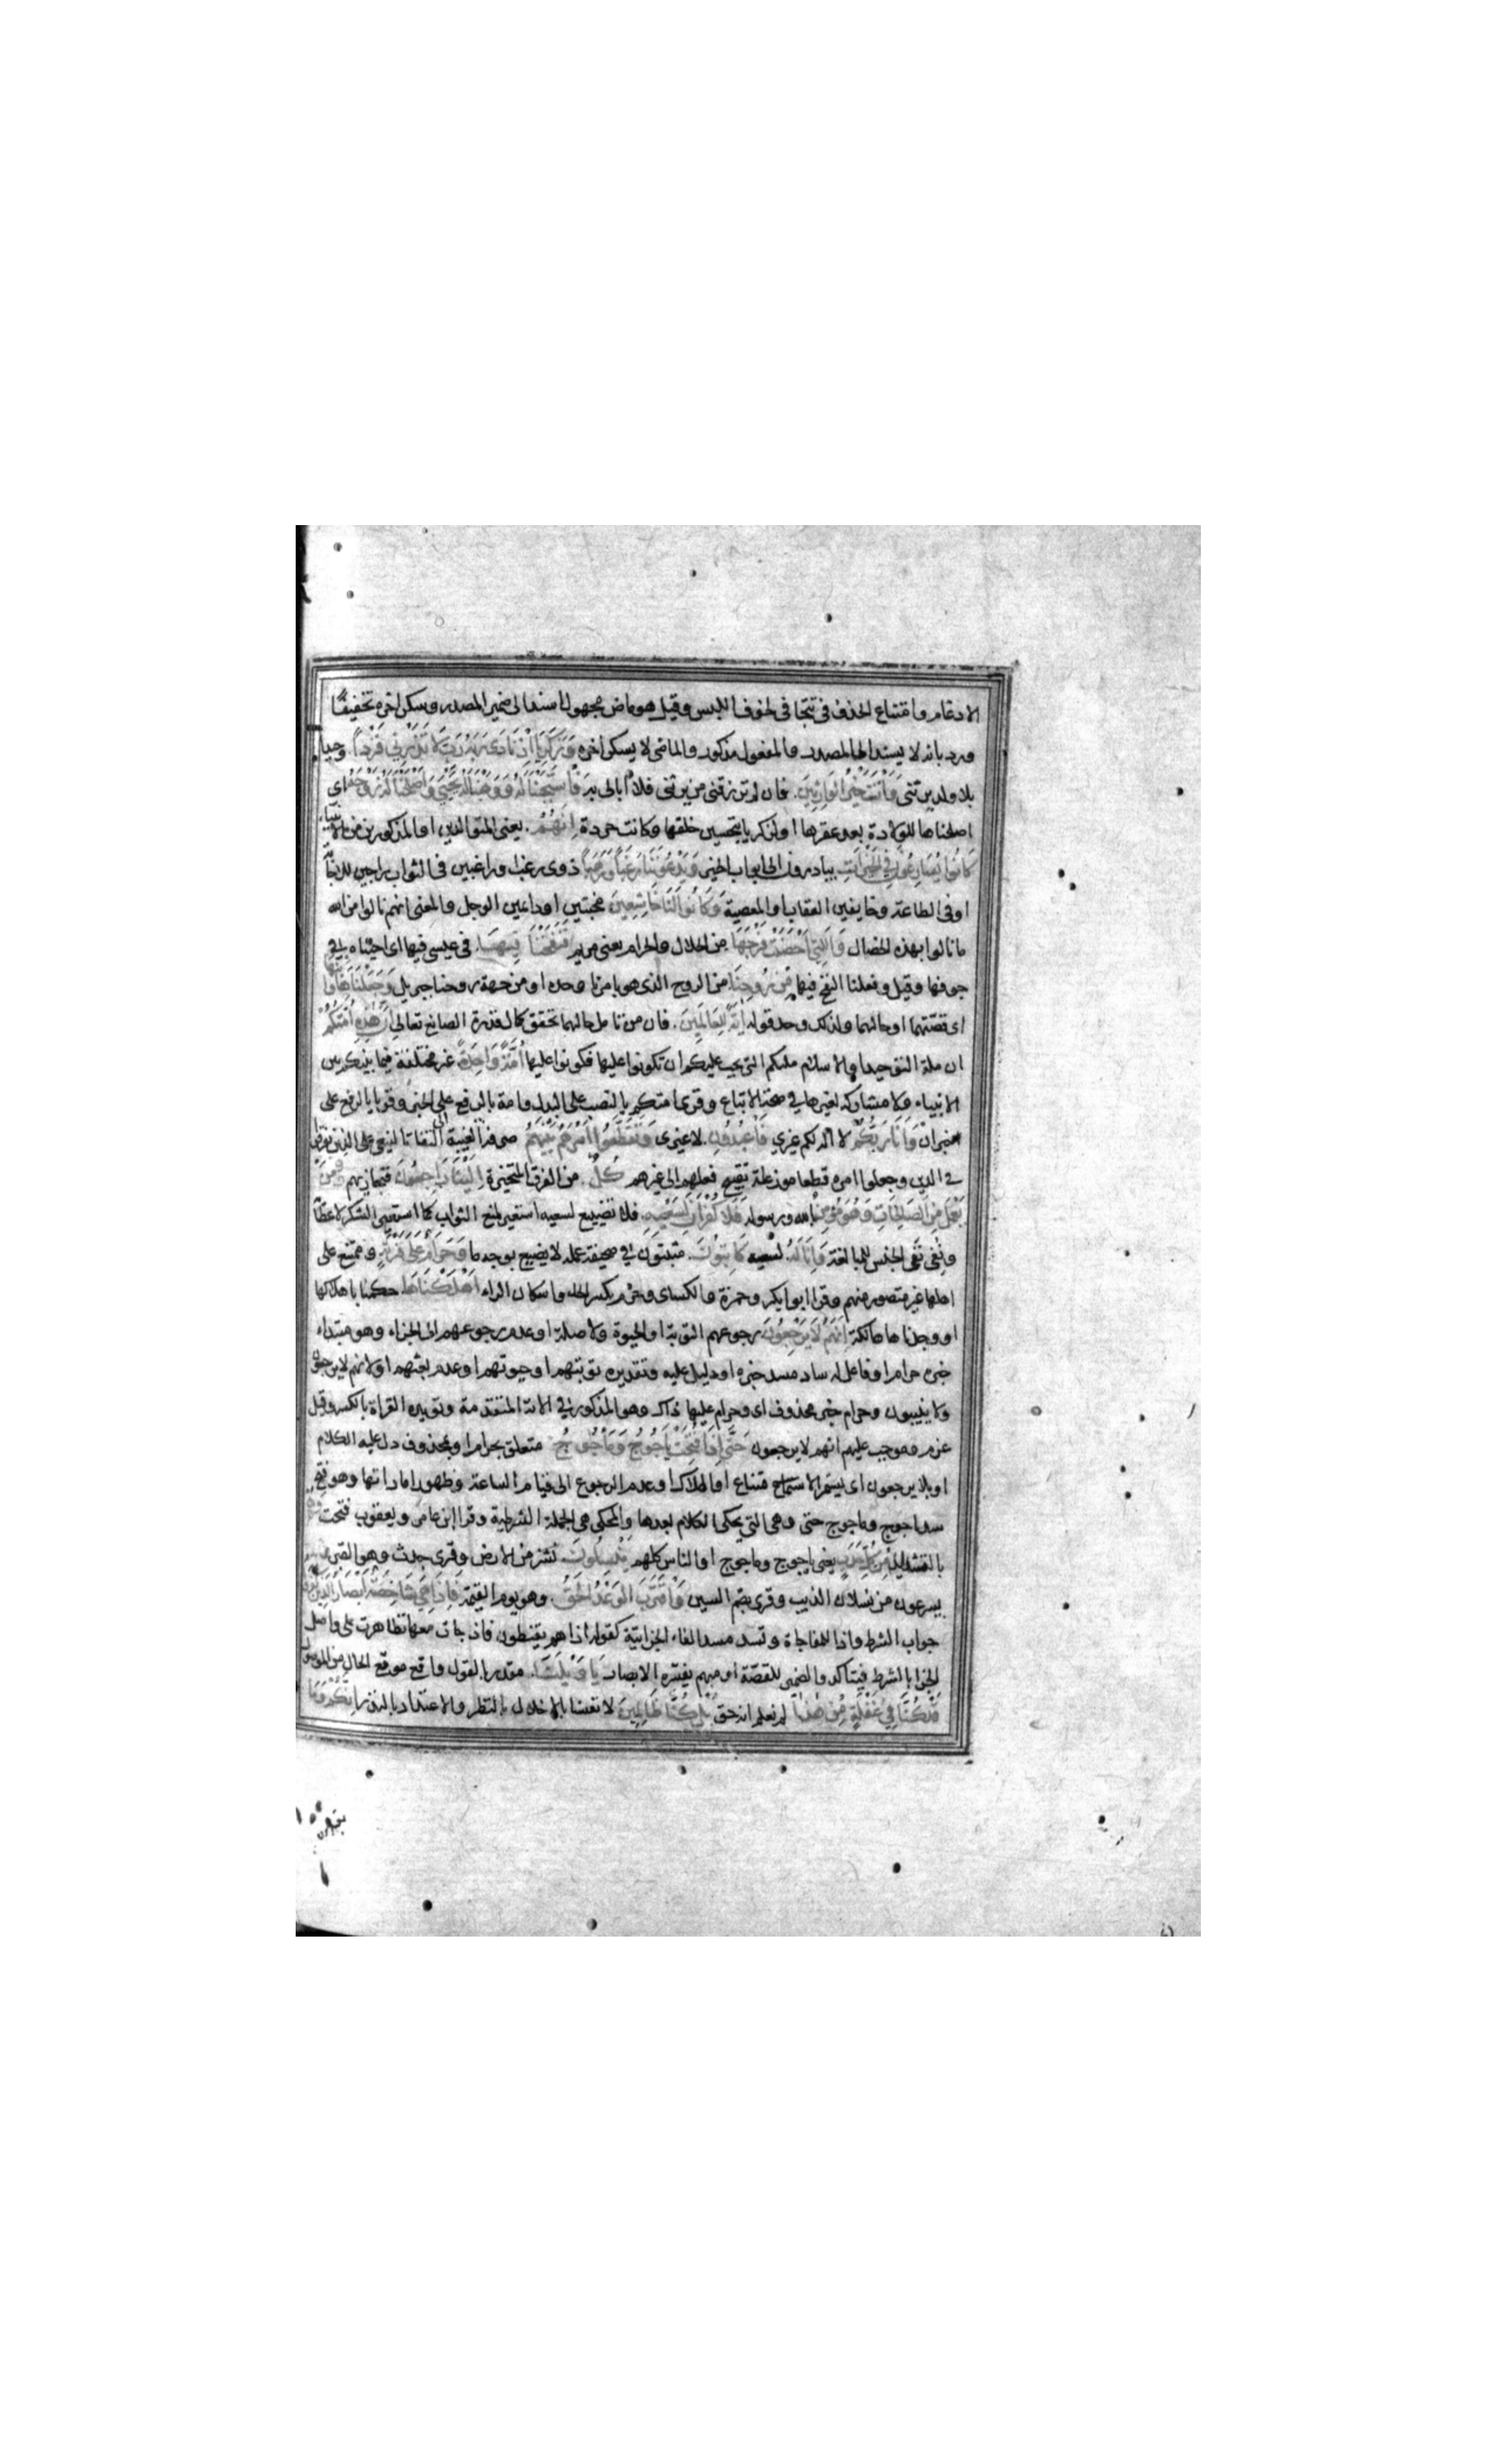 الادغام وامتناع الحذف فى تتجافى لخوف اللبس وقيل هو ماض مجهول اسند الى ضمير المصدر وسكن اخره تخفيفا
ورد بانه لا يسند الى المصدر والمفعول مذكور والماضى لا يسكن اخره وَزَكَرِيَّا اِذْ نَادَى رَبَّهُ رَبِّ لَا تَذَرْنِي فَرْداً وحيدا
بلا ولد يرثنى وَاَنْتَ خَيْرُ الوَارِثِينَ فان لم ترزقنى من يرثنى فلا ابالى به فَاسْتَجَبْنَا لَهُ وَوَهَبْنَا لَهُ يَحْيَى وَاَصْلَحْنَا لَهُ زَوْجَهُ اى
اصلحناها للولادة بعد عقرها او لزكريا بتحسين خلقها وكانت حردة اِنَّهُمْ يعنى المتوالدين او المذكورين من الانبياء
كَانُوا يُسَارِعُونَ فِي الخَيْرَاتِ يبادرون الى ابواب الخير وَيَدْعُونَنَا رَغَباً وَرَهَباً ذوى رغب او راغبين فى الثواب راجين للاجابة
او فى الطاعة وخايفين العقاب او المعصية وَكَانُوا لَنَا خَاشِعِينَ مخبتين او داعين الوجل والمعنى انهم نالوا من الله
ما نالوا بهذه الخصال وَالَّتِي اَحْصَنَتْ فَرْجَهَا من الحلال والحرام يعنى مريم فَنَفَخْنَا فِيهَا فى عيسى فيها اى احييناه فى
جوفها وقيل وفعلنا النفخ فيها مِنْ رُوحِنَا من الروح الذى هو بامرنا وحده او من جهة روحنا جبريل وَجَعَلْنَاهَا وَابْنَهَا
اى قصتهما او حالهما ولذلك وحد قوله اٰيَةً لِلْعَالَمِينَ فان من تامل حالهما تحقق كمال قدرة الصانع تعالى اِنَّ هٰذِهِ اُمَّتُكُمْ
ان ملة التوحيد او الاسلام ملتكم التى يجب عليكم ان تكونوا عليها فكونوا عليها اُمَّةً وَاحِدَةً غير مختلفة فيما بين
الانبياء ولا مشاركة لغيرها فى صحة الاتباع وقرى امتكم بالنصب على البدل وامة بالرفع على الخبر وقريا بالرفع على
خبران وَاَنَا رَبُّكُمْ لا اله لكم غيرى فَاعْبُدُونِ لا غيرى وَتَقَطَّعُوا اَمْرَهُمْ بَيْنَهُمْ صرفه الى الغيبة التفاتا لينعى على الذين تفرقوا
فى الدين وجعلوا امره قطعا موزعة بقبيح فعلهم الى غيرهم كُلٌّ من الفرق المتحزبة اِلَيْنَا رَاجِعُونَ فنجازيهم فَمَنْ
يَعْمَلْ مِنَ الصَّالِحَاتِ وَهُوَ مُؤْمِنٌ بالله ورسوله فَلَا كُفْرَانَ لِسَعْيِهِ فلا تضييع لسعيه استعير لمنع الثواب كما استعير الشكر لاعطائه
ونفى نفى الجنس للمبالغة وَاِنَّا لَهُ لسعيه كَاتِبُونَ مثبتون فى صحيفة عمله لا يضيع بوجه ما وَحَرَامٌ عَلَى قَرْيَةٍ وممتنع على
اهلها غير متصور منهم وقرا ابو بكر وحمزة والكساى وحرم بكسر الحاء واسكان الراء اَهْلَكْنَاهَا حكمنا باهلاكها
او وجدناها هالكة اَنَّهُمْ لَا يَرْجِعُونَ رجوعهم الى التوبة او الحيوة ولا صلة او عدم رجوعهم الى الجزاء وهو مبتداء
خبره حرام او فاعل له ساد مسد خبره او دليل عليه وتقديره توبتهم او حيوتهم او عدم بعثهم او لانهم لا يرجعون
ولا ينيبون وحرام خبر محذوف اى وحرام عليها ذاك وهو المذكور فى الاية المتقدمة ويؤيده القراة بالكسر وقيل
عزم وموجب عليهم انهم لا يرجعون حَتَّى اِذَا فُتِحَتْ يَاجُوجُ وَمَاجُوجُ متعلق بحرام او بمحذوف دل عليه الكلام
او بلا يرجعون اى يستمر الامتناع او الهلاك او عدم الرجوع الى قيام الساعة وظهور اماراتها وهو فتح
سد ياجوج وماجوج حتى وهى التى يحكى الكلام بعدها والمحكى هى الجملة الشرطية وقرا ابن عامر ويعقوب فتحت
بالتشديد مِنْ كُلِّ حَدَبٍ يعنى ياجوج وماجوج او الناس كلهم يَنْسِلُونَ نشز من الارض وقرى جدث وهو القبر
يسرعون من نسلان الذيب وقرى بضم السين وَاقْتَرَبَ الوَعْدُ الحَقُّ وهو يوم القيمة فَاِذَا هِيَ شَاخِصَةٌ اَبْصَارُ الَّذِينَ كفروا
جواب الشرط واذا للمفاجاة وتسد مسد الفاء الجزائية كقوله اذا هم يقنطون فاذا جات معها تظاهرت على واصل
الجزا بالشرط فيتاكد والضمير للقصة او مبهم يفسره الابصار يَا وَيْلَنَا مقدر بالقول واقع موقع الحال من الموصول
قَدْ كُنَّا فِي غَفْلَةٍ مِنْ هٰذَا لم نعلم انه حق بَلْ كُنَّا ظَالِمِينَ لانفسنا بالاخلال بالنظر والاعتداد بالنذر اِنَّكُمْ وَمَا